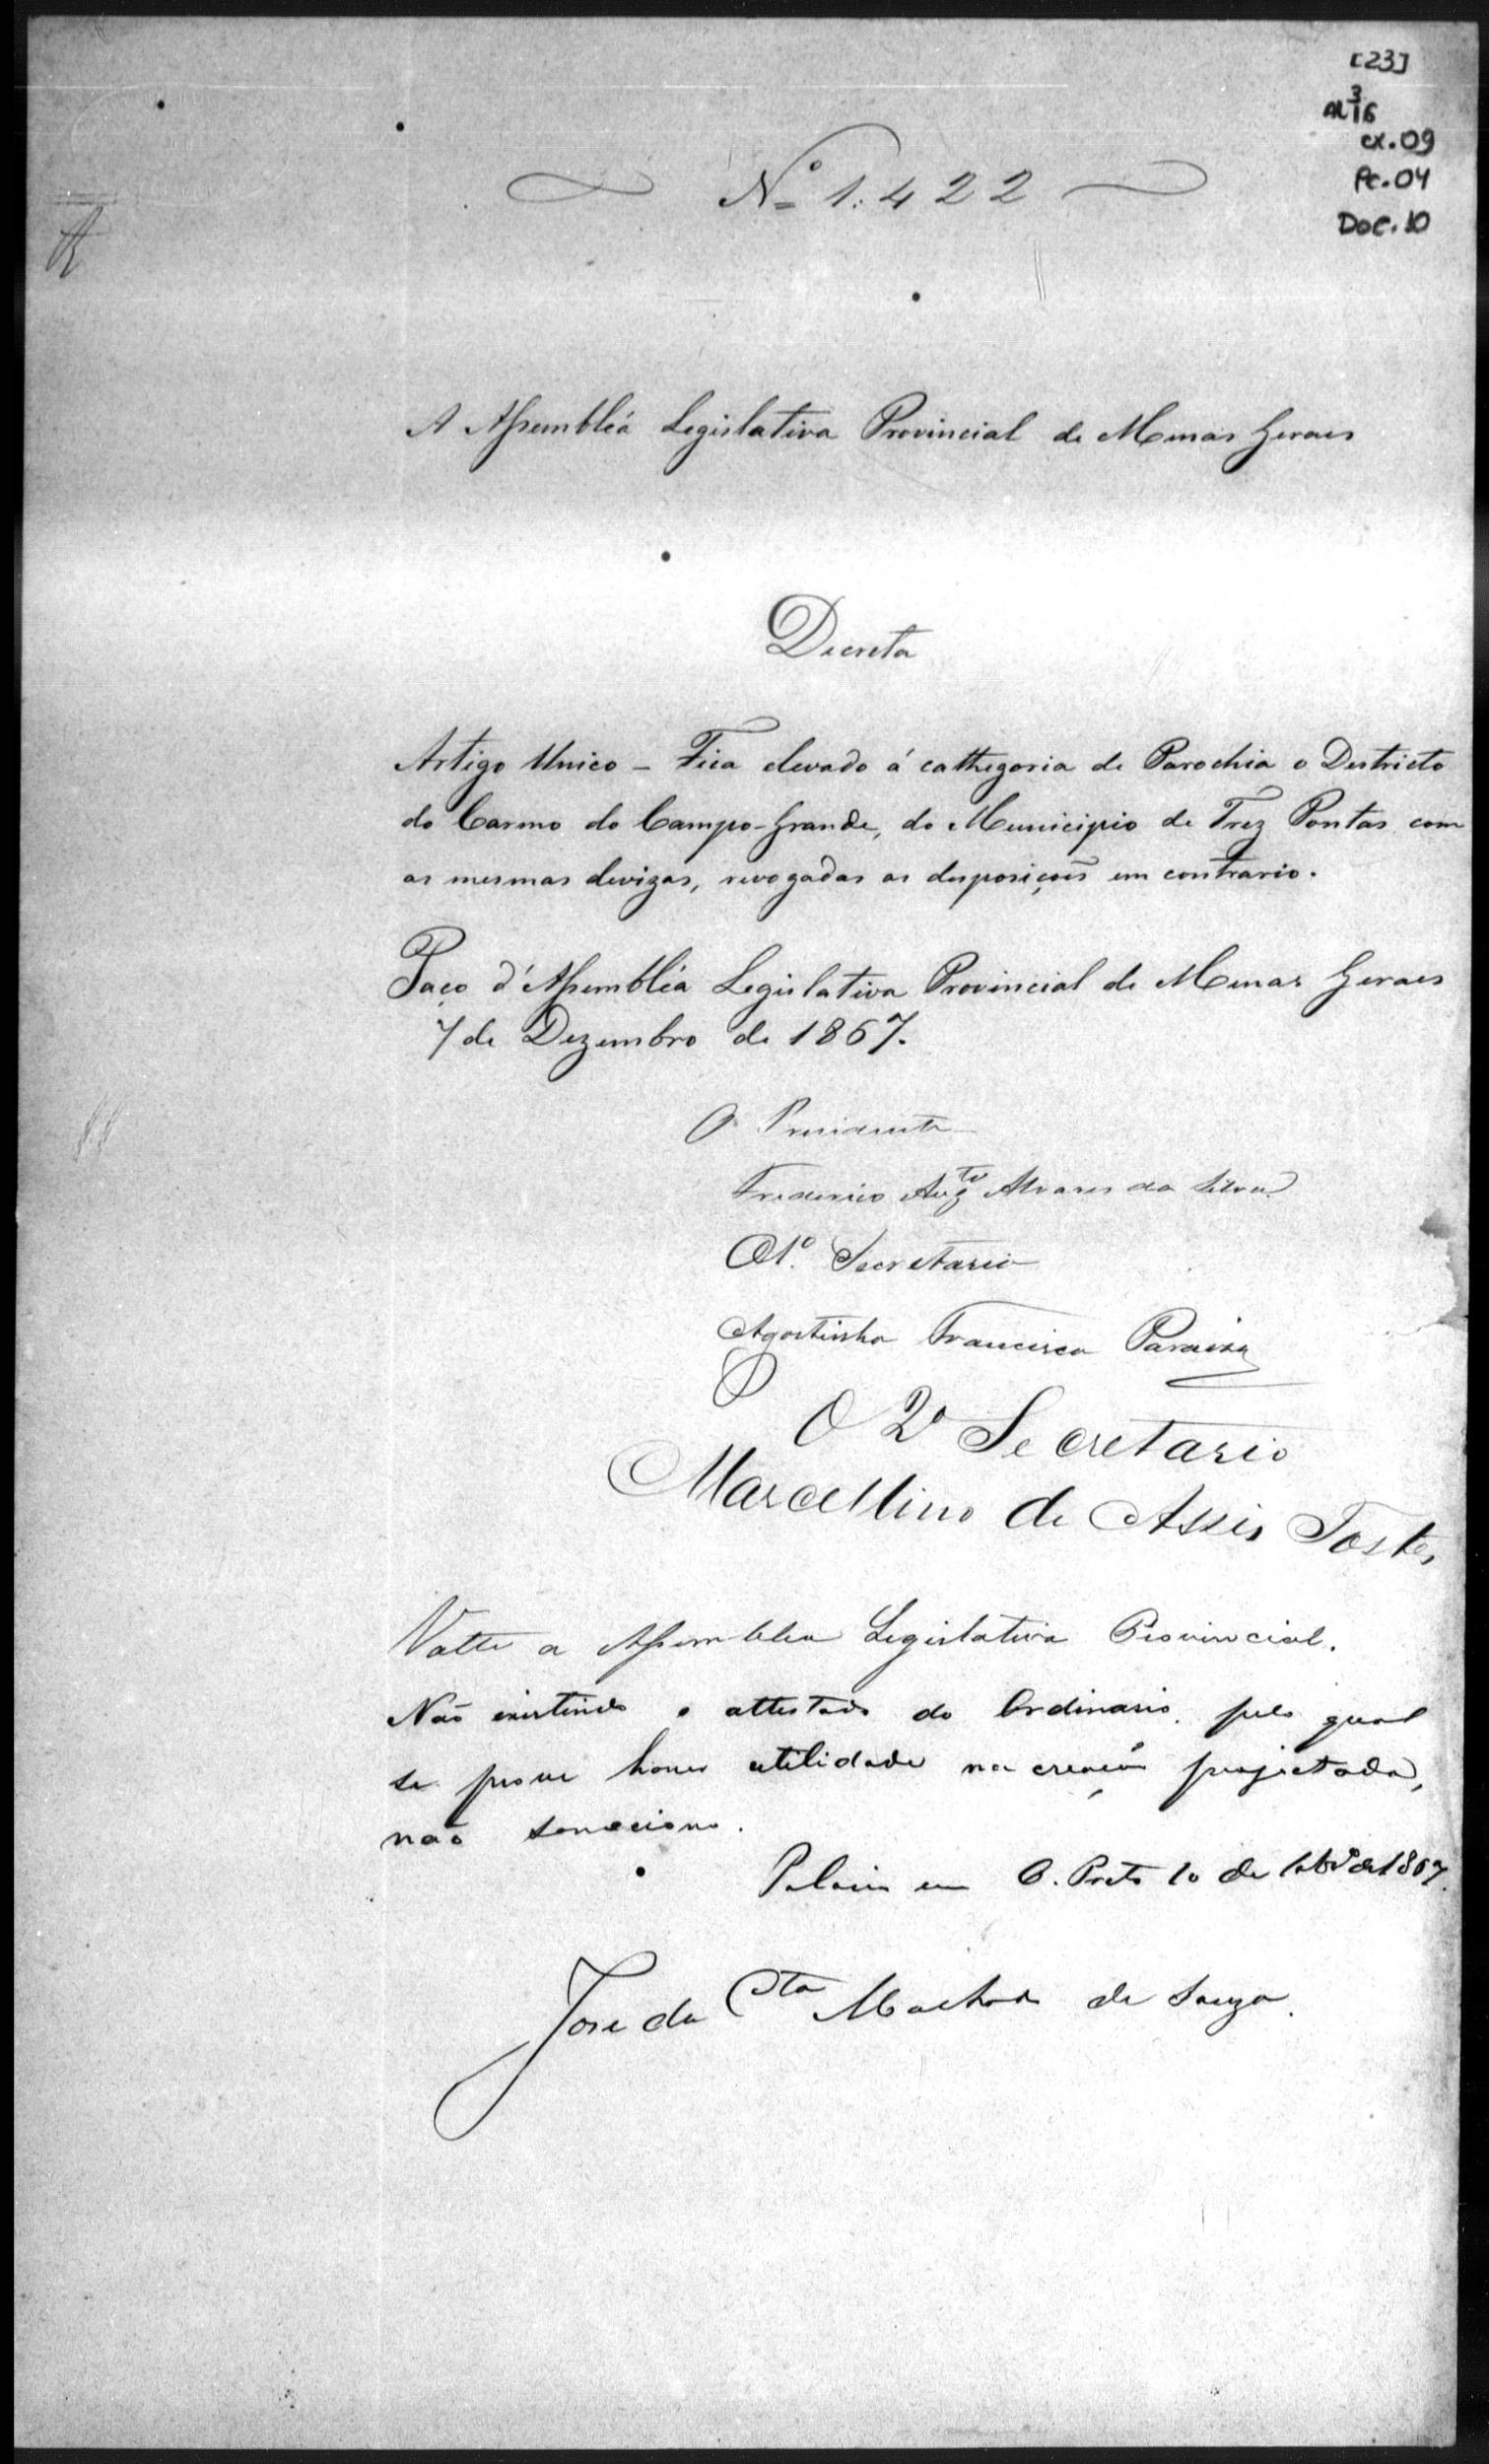 [23]
AL 3 16
cx. 09
Pc. 04
Doc. 10
Nº 1:422
A Assembléa Legislativa Provincial de Minas Geraes
Decreta
Artigo Unico – Fica elevado á cathegoria de Parochia o Districto
do Carmo do Campo-Grande, do Municipio de Trez Pontas com
as mesmas devizas, revogadas as disposiçoẽs em contrario.
Paço d'Assembléa Legislativa Provincial de Minas Geraes
7 de Dezembro de 1867.
O Presidente
Frederico Augto Alvares da Silva
O 1º. Secretario
Agostinho Francisco Paraizo
O 2º Secretario
Marcellino de Assis Tostes
Volte a Assemblea Legislativa Provincial.
Não existindo o attestado do Ordinario, pelo qual
se prove haver utilidade na creação projectada,
não sancciono.
Palacio em O. Preto 10 de de 1867.
José da Cta Machado de Souza.